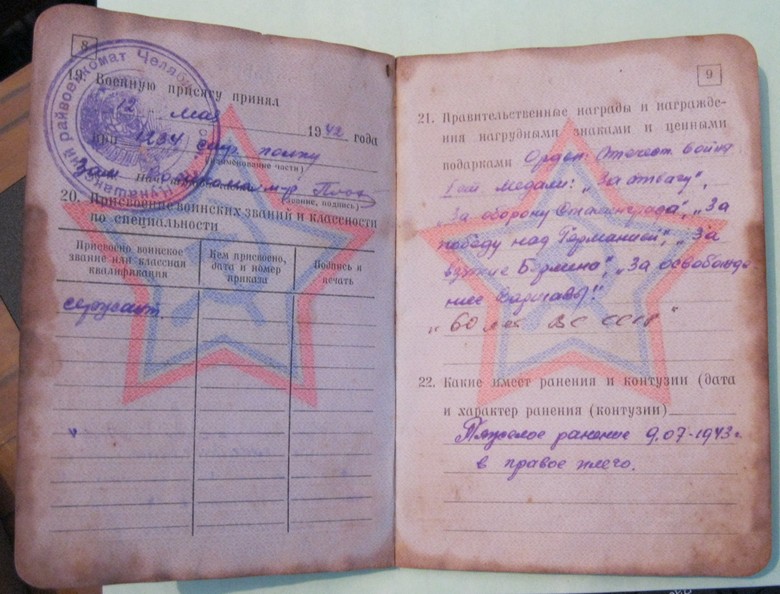 8
19. Военную присягу принял
12 мая 1942 года
при 1234 стр. полку
(наименование части)
Зам
(звание, подпись)
20. Присвоение воинских званий и классности
по специальности
Присвоено воинское
звание или классная
квалификация
Кем присвоено,
дата и номер
приказа
Подпись и
печать
сержант
9
21. Правительственные награды и награжде-
ния нагрудными знаками и ценными
подарками Орден: Отечест. войны
медали: „За отвагу",
„За оборону Сталинграда", „За
победу над Германией", „За
взятие Берлина", „За освобожде
ние Варшавы"!
„60 лет ВС СССР"
22. Какие имеет ранения и контузии (дата
и характер ранения (контузии)
Тяжолое ранение 9.07-1943 г.
в правое плечо.